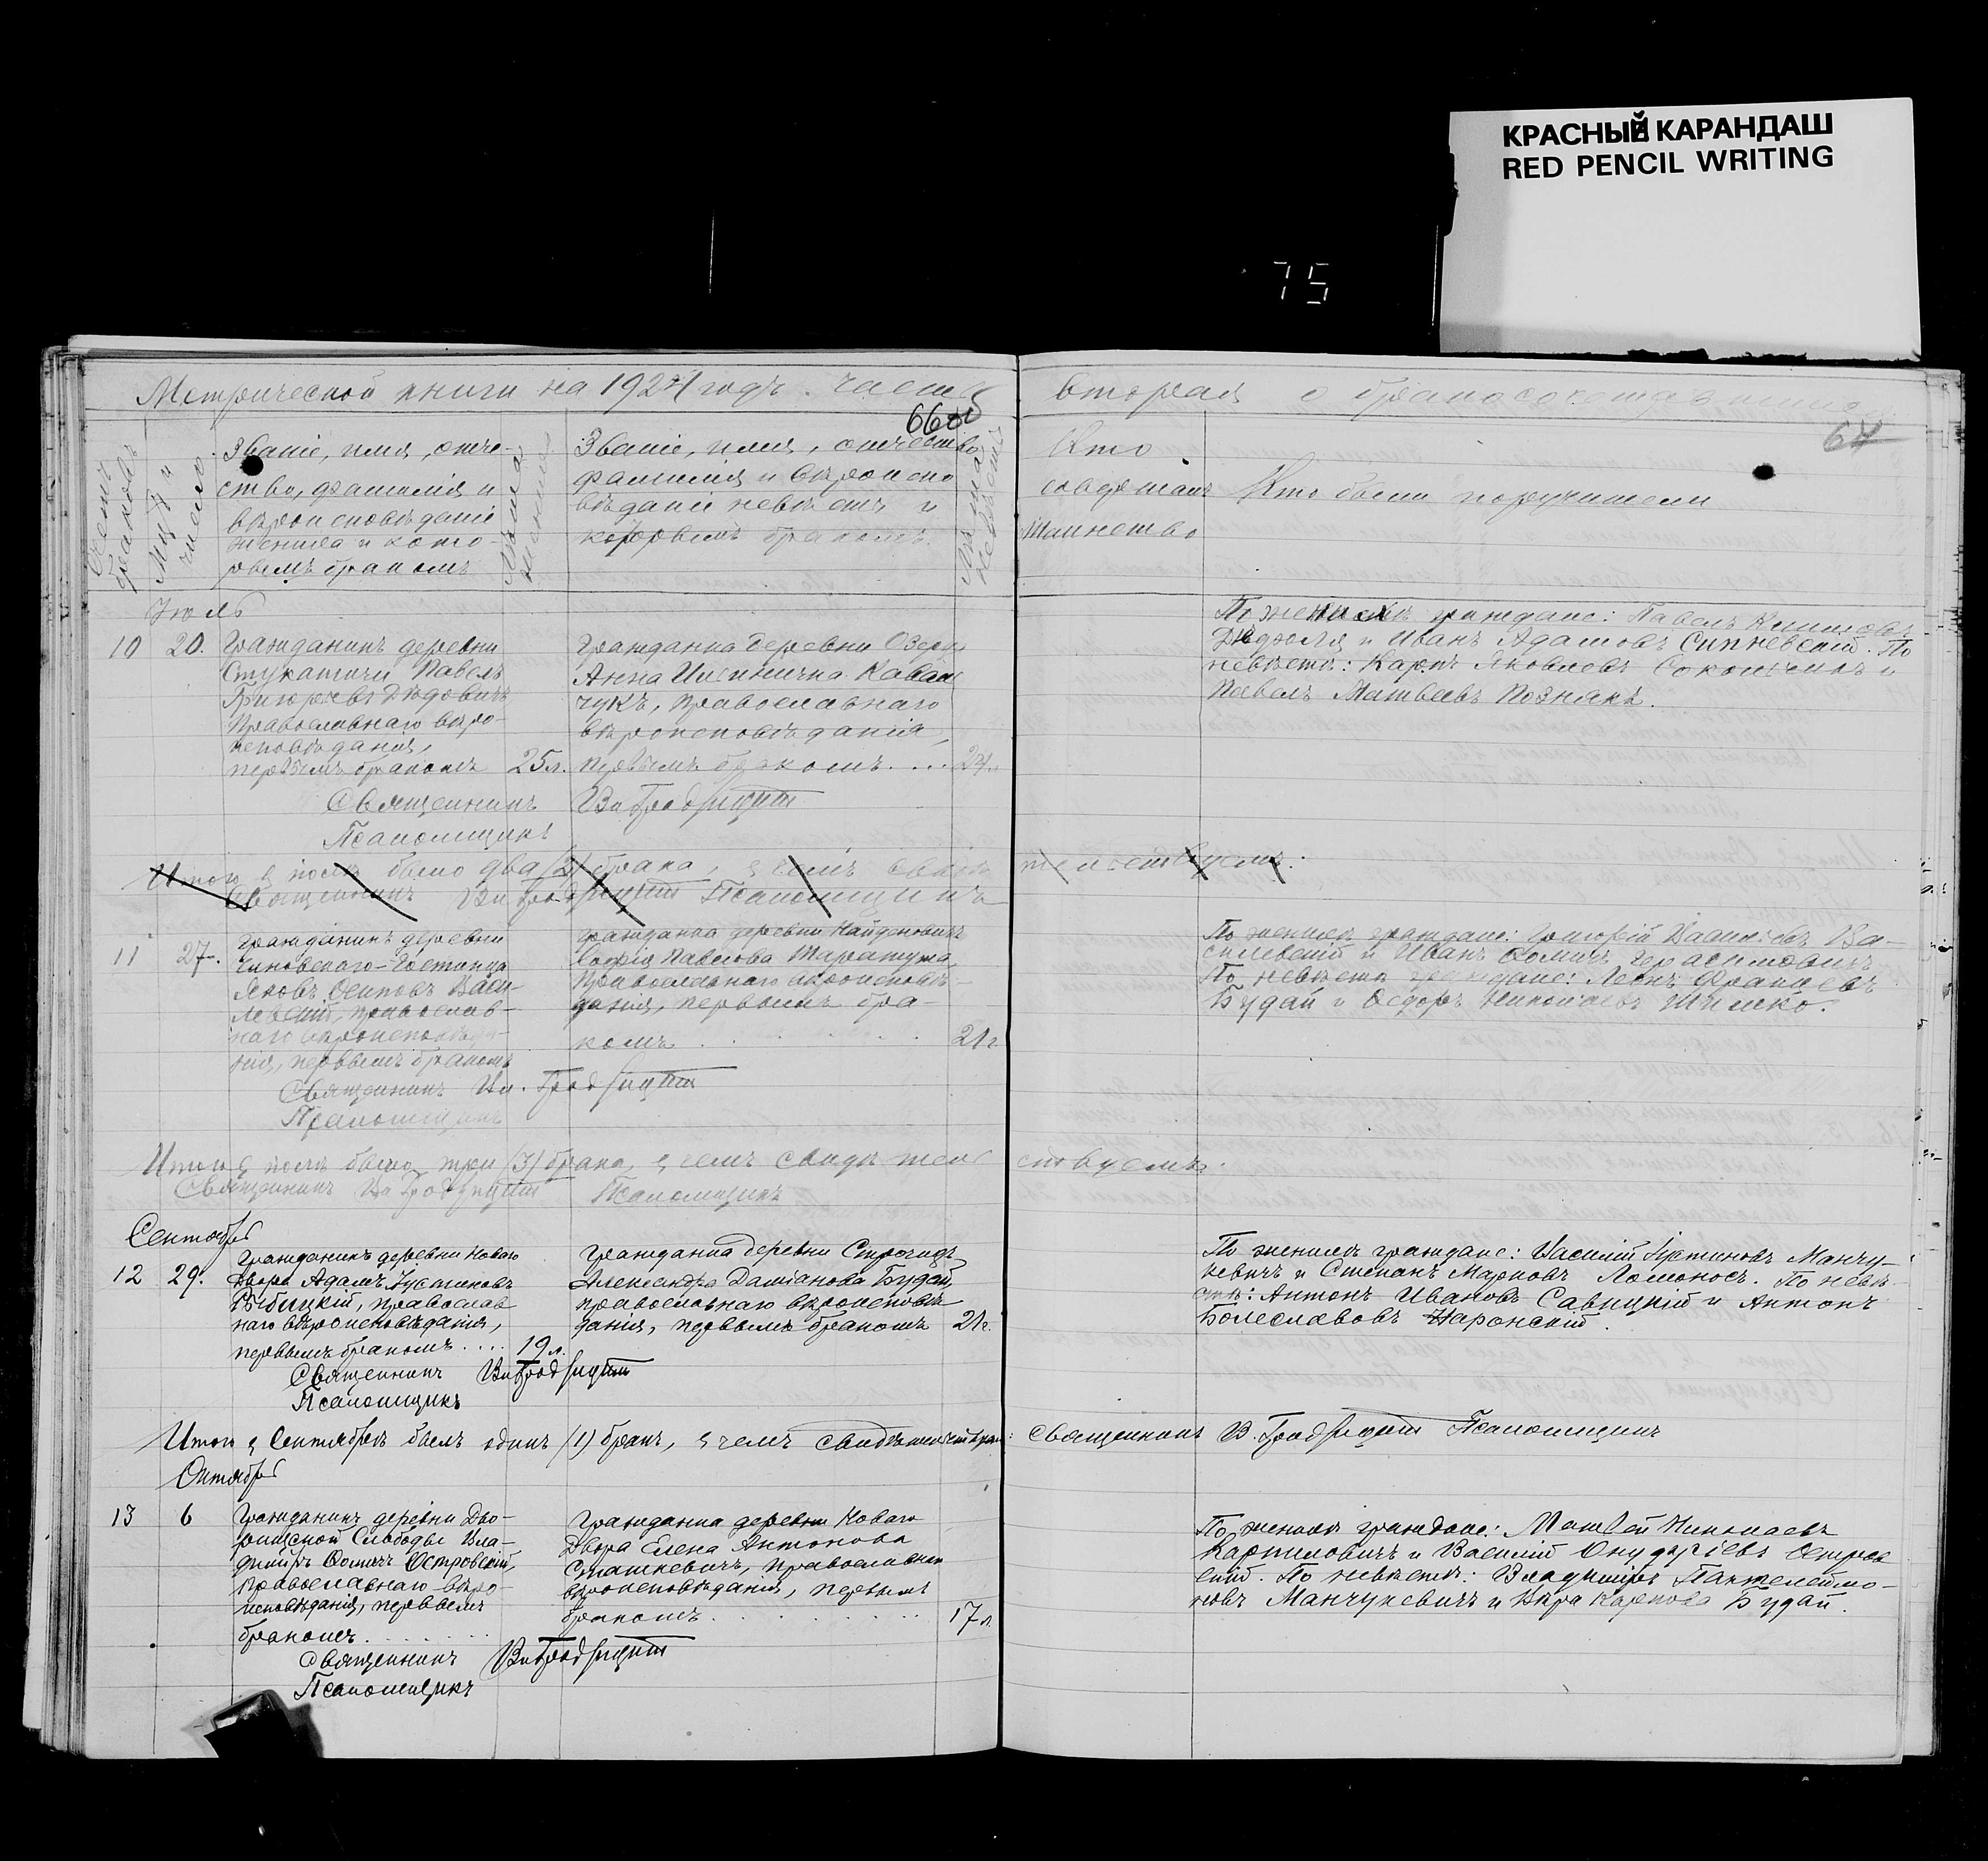 КРАСНЫЙ КАРАНДАШ
RED PENCIL WRITING
75
Метрической книги на 1924 годъ. часть вторая о бракосочетавшихся
66об
67
Счетъ браковъ
Мц‌ъ и число
Званіе, имя, отче-
ство, фамилія и
вѣроисповѣданіе
жениха и кото-
рымъ бракомъ
Лѣта жениха
Званіе, имя, отчество,
фамилія и вѣроиспо
вѣданіе невѣсты и
которымъ бракомъ.
Лѣта невѣсты
Кто
совершалъ
Таинство
Кто были поручители
Іюль
10 20.
Гражданинъ деревни
Стукатичи Павелъ
Григорьевъ Дѣдовичъ
Православнаго вѣро-
исповѣданія,
первымъ бракомъ 25 л.
Гражданка деревни
Анна
чукъ, православнаго
вѣроисповѣданія,
первымъ бракомъ....
По женихѣ граждане: Павелъ
и Иванъ Адамовъ По
невѣстѣ: Карпъ Яковлевъ и
Павелъ Матвеевъ Познякъ.
Священникъ
Псаломщикъ
Итого въ іюлѣ было два (2) брака, въ чемъ свидѣтельствуемъ:
Священникъ Псаломщикъ
11 27.
Гражданинъ деревни
Яковъ Осиповъ Васи-
левскій, православ-
наго вѣроисповѣда-
нія, первымъ бракомъ
гражданка деревни
Софія Павлова
Православнаго вѣроисповѣ-
данія, первымъ бра-
комъ 21 г.
По женихѣ граждане: Григорій Ва-
силевскій и Иванъ Ѳоминъ Герасимовичъ
По невѣстѣ граждане: Леонъ
Будай и Ѳедоръ Николаевъ Шимко.
Священникъ
Псаломщикъ
Итого въ іюлѣ было три (3) брака, въ чемъ свидѣтельствуемъ:
Священникъ Псаломщикъ
Сентябрь
12 29.
Гражданинъ деревни Новаго
Двора Адамъ Іустиновъ
православ
наго вѣроисповѣданія,
первымъ бракомъ.... 19 л.
Гражданка деревни
Александра Даміанова Будай,
православнаго вѣроисповѣ
данія, первымъ бракомъ 21 г.
По женихѣ граждане: Василій Іустиновъ Манчу-
кевичъ и Степанъ Марковъ Ломоносъ. По невѣ-
стѣ: Антонъ Ивановъ Савицкій и Антонъ
Болеславовъ Наронскій.
Священникъ
Псаломщикъ
Итого въ Сентябрѣ былъ одинъ (1) бракъ, въ чемъ свидѣтельствуемъ: Священникъ Псаломщикъ
Октябрь
13 6
Гражданинъ деревни Дво-
рищской Слободы Вла-
димиръ Ѳоминъ Островскій,
православнаго вѣро-
исповѣданія, первымъ
бракомъ
Гражданка деревни Новаго
Двора Елена Антонова
Сташкевичъ, православнаго
вѣроисповѣданія, первымъ
бракомъ 17 л.
По женихѣ граждане: Матвей Николаевъ
Карпиловичъ и Василій Онуфріевъ Островс
кій. По невѣстѣ: Владимиръ Пантелеймо-
новъ Манчукевичъ и Вѣра Карпова Будай.
Священникъ
Псаломщикъ